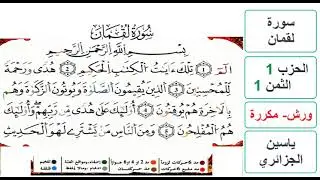 سُورَةُ لُقْمَانَ
بِسْمِ اللَّهِ الرَّحْمَٰنِ الرَّحِيمِ
أَلَٓمِّٓ ١ تِلْكَ ءَايَٰتُ الْكِتَٰبِ الْحَكِيمِ ٢ هُدًى وَرَحْمَةً
لِّلْمُحْسِنِينَ ٣ الَّذِينَ يُقِيمُونَ الصَّلَوٰةَ وَيُوتُونَ الزَّكَوٰةَ وَهُم
بِالَاخِرَةِ هُمْ يُوقِنُونَ ٤ أُوْلَٰٓئِكَ عَلَىٰ هُدًى مِّن رَّبِّهِمْ وَأُوْلَٰٓئِكَ
هُمُ الْمُفْلِحُونَ ٥ وَمِنَ النَّاسِ مَنْ يَّشْتَرِي لَهْوَ الْحَدِيثِ
سورة
لقمان
الحزب 1
الثمن 1
ورش- مكررة
ياسين
الجزائري